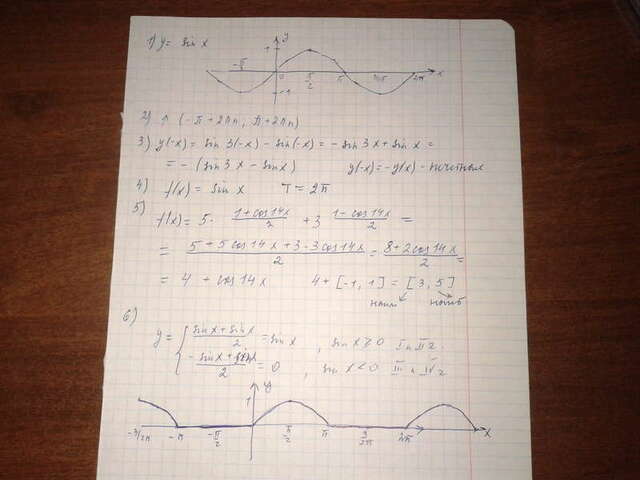 1) y = sin x
y
1
-π/2 0 π/2 π 2π x
-1
2) ↑ (-π + 2πn, π + 2πn)
3) y(-x) = sin 3(-x) - sin(-x) = -sin 3x + sin x =
= -(sin 3x - sin x) y(-x) = -y(x) - нечетная
4) f(x) = sin x T = 2π
5) f(x) = 5 · (1 + cos 14x)/2 + 3 (1 - cos 14x)/2 =
= (5 + 5 cos 14x + 3 - 3 cos 14x)/2 = (8 + 2 cos 14x)/2 =
= 4 + cos 14x 4 + [-1, 1] = [3, 5]
наим наиб
6)
y = { (sin x + sin x)/2 = sin x , sin x ≥ 0 I и II ч.
(-sin x + sin x)/2 = 0 , sin x < 0 III и IV ч
y
1
-3/2π -π -π/2 0 π/2 π 3/2π 2π x